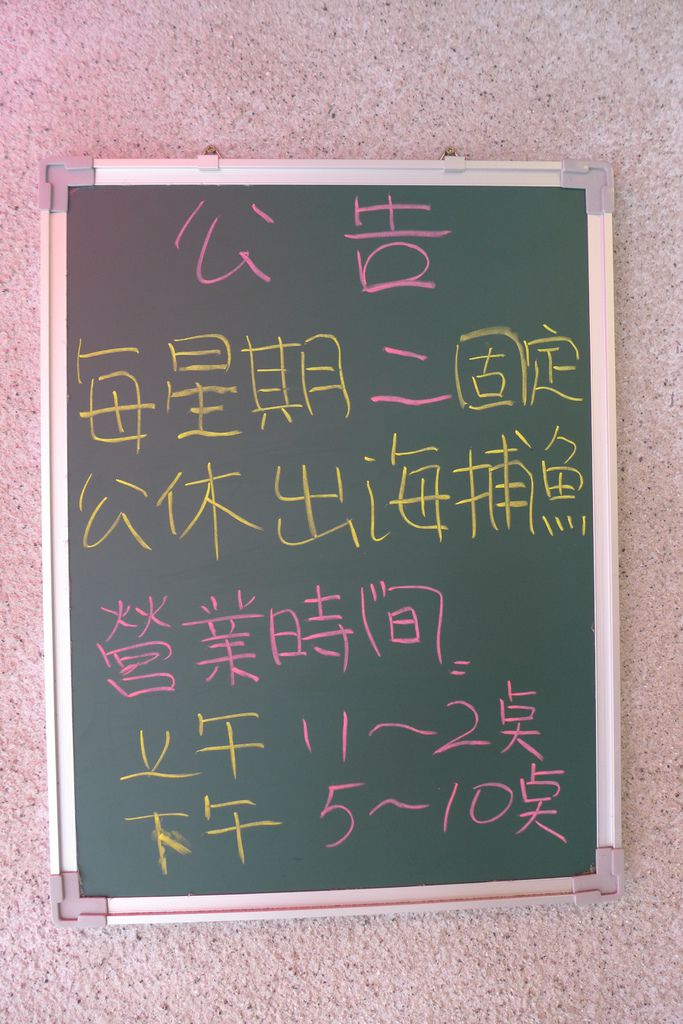 公告
每星期二固定
公休出海捕魚
營業時間=
立午 11～2点
下午 5～10点